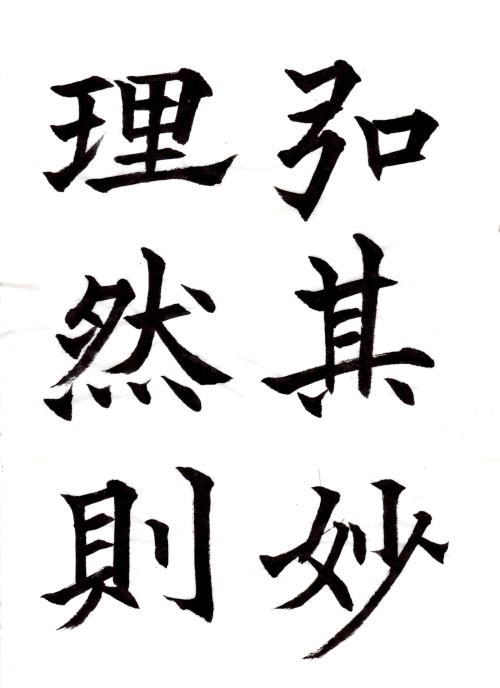 弘其妙
理然則